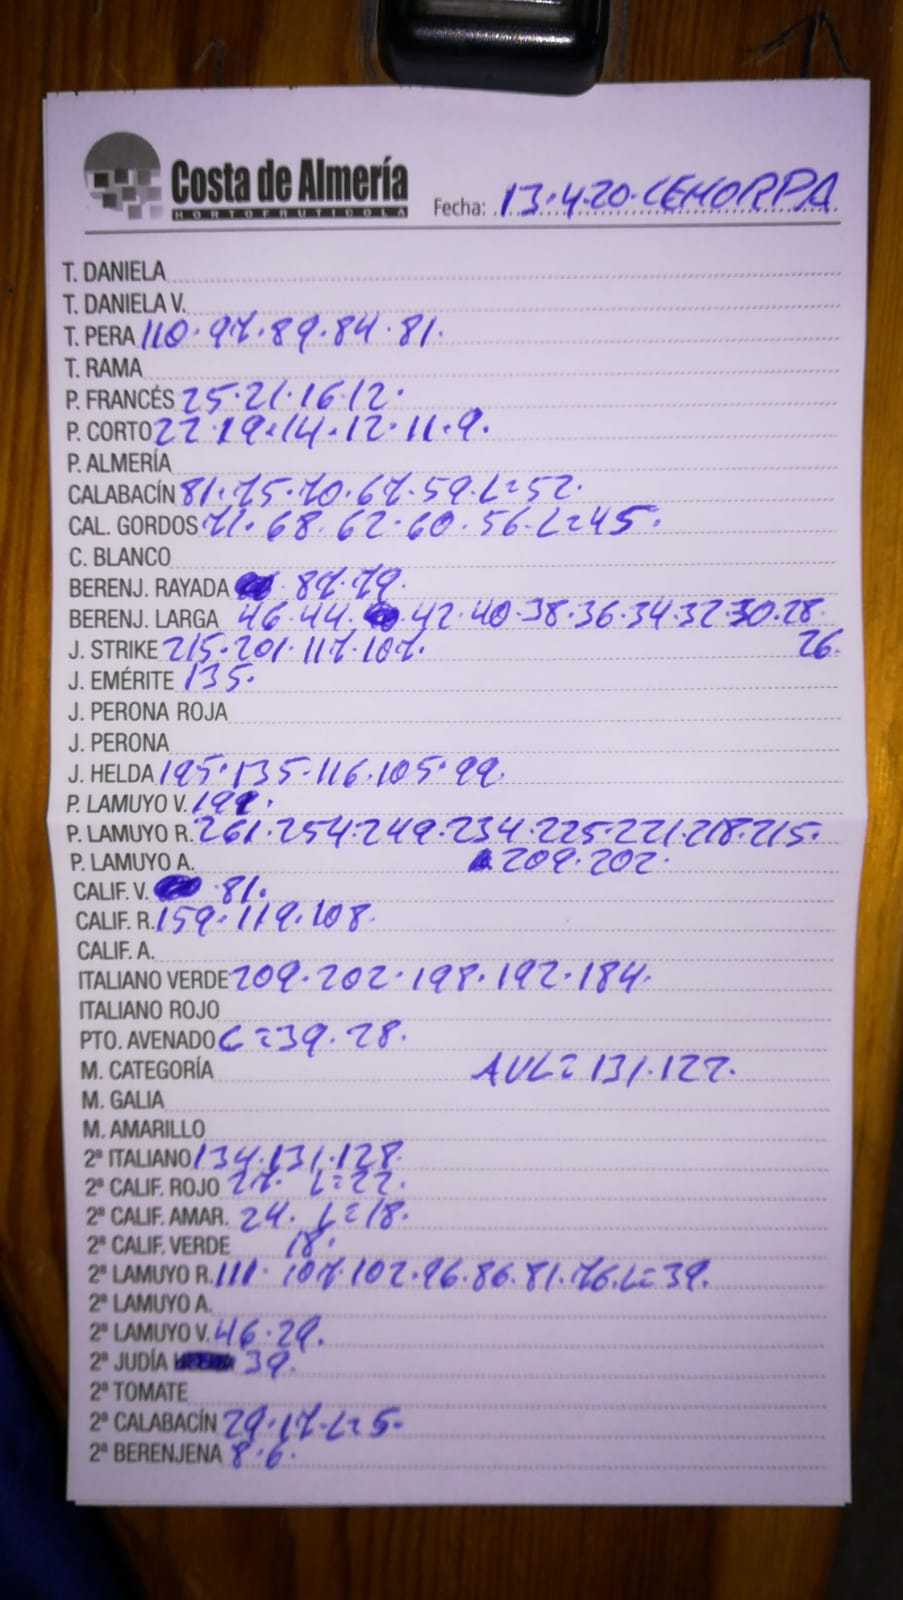 Costa de Almería
HORTOFRUTICOLA
Fecha: 13.4.20. CEHORPA
T. DANIELA
T. DANIELA V.
T. PERA 110. 97. 89. 84. 81.
T. RAMA
P. FRANCÉS 25. 21. 16. 12.
P. CORTO 22 19. 14. 12. 11. 9.
P. ALMERÍA
CALABACÍN 81. 75. 70. 67. 59. L=52.
CAL. GORDOS 71. 68. 62. 60. 56. L=45.
C. BLANCO
BERENJ. RAYADA 87. 79.
BERENJ. LARGA 46. 44. 42. 40. 38. 36. 34. 32. 30. 28.
26.
J. STRIKE 215. 201. 117. 107.
J. EMÉRITE 135.
J. PERONA ROJA
J. PERONA
J. HELDA 195. 135. 116. 105. 99.
P. LAMUYO V.
P. LAMUYO R. 261. 254. 249. 234. 225. 221. 218. 215.
P. LAMUYO A. 209. 202.
CALIF. V. 81.
CALIF. R. 159. 119. 108.
CALIF. A.
ITALIANO VERDE 209. 202. 198. 192. 184.
ITALIANO ROJO
PTO. AVENADO C=39. 28.
M. CATEGORÍA AUL= 131. 122.
M. GALIA
M. AMARILLO
2ª ITALIANO 134. 131. 128.
2ª CALIF. ROJO 27. L=22.
2ª CALIF. AMAR. 24. L=18.
2ª CALIF. VERDE 18.
2ª LAMUYO R. 111. 107. 102. 96. 86. 81. 76. L=39.
2ª LAMUYO A.
2ª LAMUYO V. 46. 29.
2ª JUDÍA 39.
2ª TOMATE
2ª CALABACÍN 29. 17. L=5.
2ª BERENJENA 8. 6.